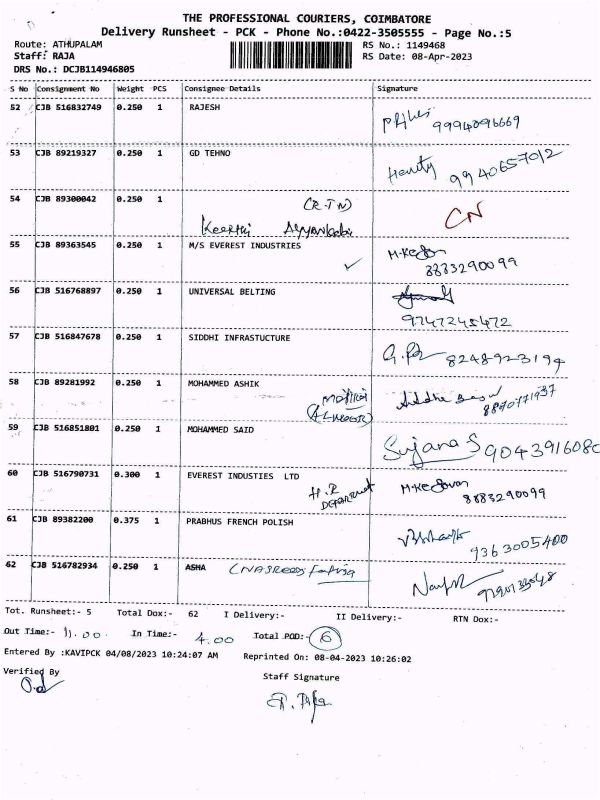 THE PROFESSIONAL COURIERS, COIMBATORE
Delivery Runsheet - PCK - Phone No.:0422-3505555 - Page No.:5
Route: ATHUPALAM RS No.: 1149468
Staff: RAJA RS Date: 08-Apr-2023
DRS No.: DCJB114946805
S No Consignment No Weight PCS Consignee Details Signature
52 CJB 516832749 0.250 1 RAJESH
9994096669
53 CJB 89219327 0.250 1 GD TEHNO
9940657012
54 CJB 89300042 0.250 1 (R.T.N) CN
Keerthi
55 CJB 89363545 0.250 1 M/S EVEREST INDUSTRIES
8883290099
56 CJB 516768897 0.250 1 UNIVERSAL BELTING
9747245472
57 CJB 516847678 0.250 1 SIDDHI INFRASTUCTURE
8248923194
58 CJB 89281992 0.250 1 MOHAMMED ASHIK
59 CJB 516851801 0.250 1 MOHAMMED SAID
Sujana S 904391608
60 CJB 516790731 0.300 1 EVEREST INDUSTIES LTD
H.R 8883290099
61 CJB 89382200 0.375 1 PRABHUS FRENCH POLISH
9363005400
62 CJB 516782934 0.250 1 ASHA
Tot. Runsheet:- 5 Total Dox:- 62 I Delivery:- II Delivery:- RTN Dox:-
Out Time:- 11.00 In Time:- 4.00 Total POD:- 6
Entered By :KAVIPCK 04/08/2023 10:24:07 AM Reprinted On: 08-04-2023 10:26:02
Verified By Staff Signature